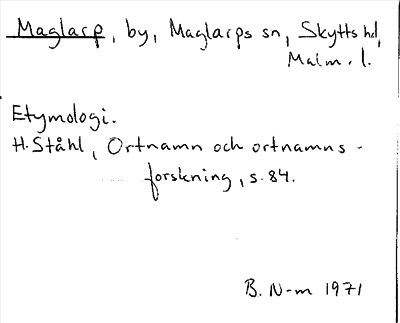 Maglarp, by, Maglarps sn, Skytts hd,
Malm. l.
Etymologi.
H. Ståhl, Ortnamn och ortnamns-
forskning, s. 84.
B. N-m 1971